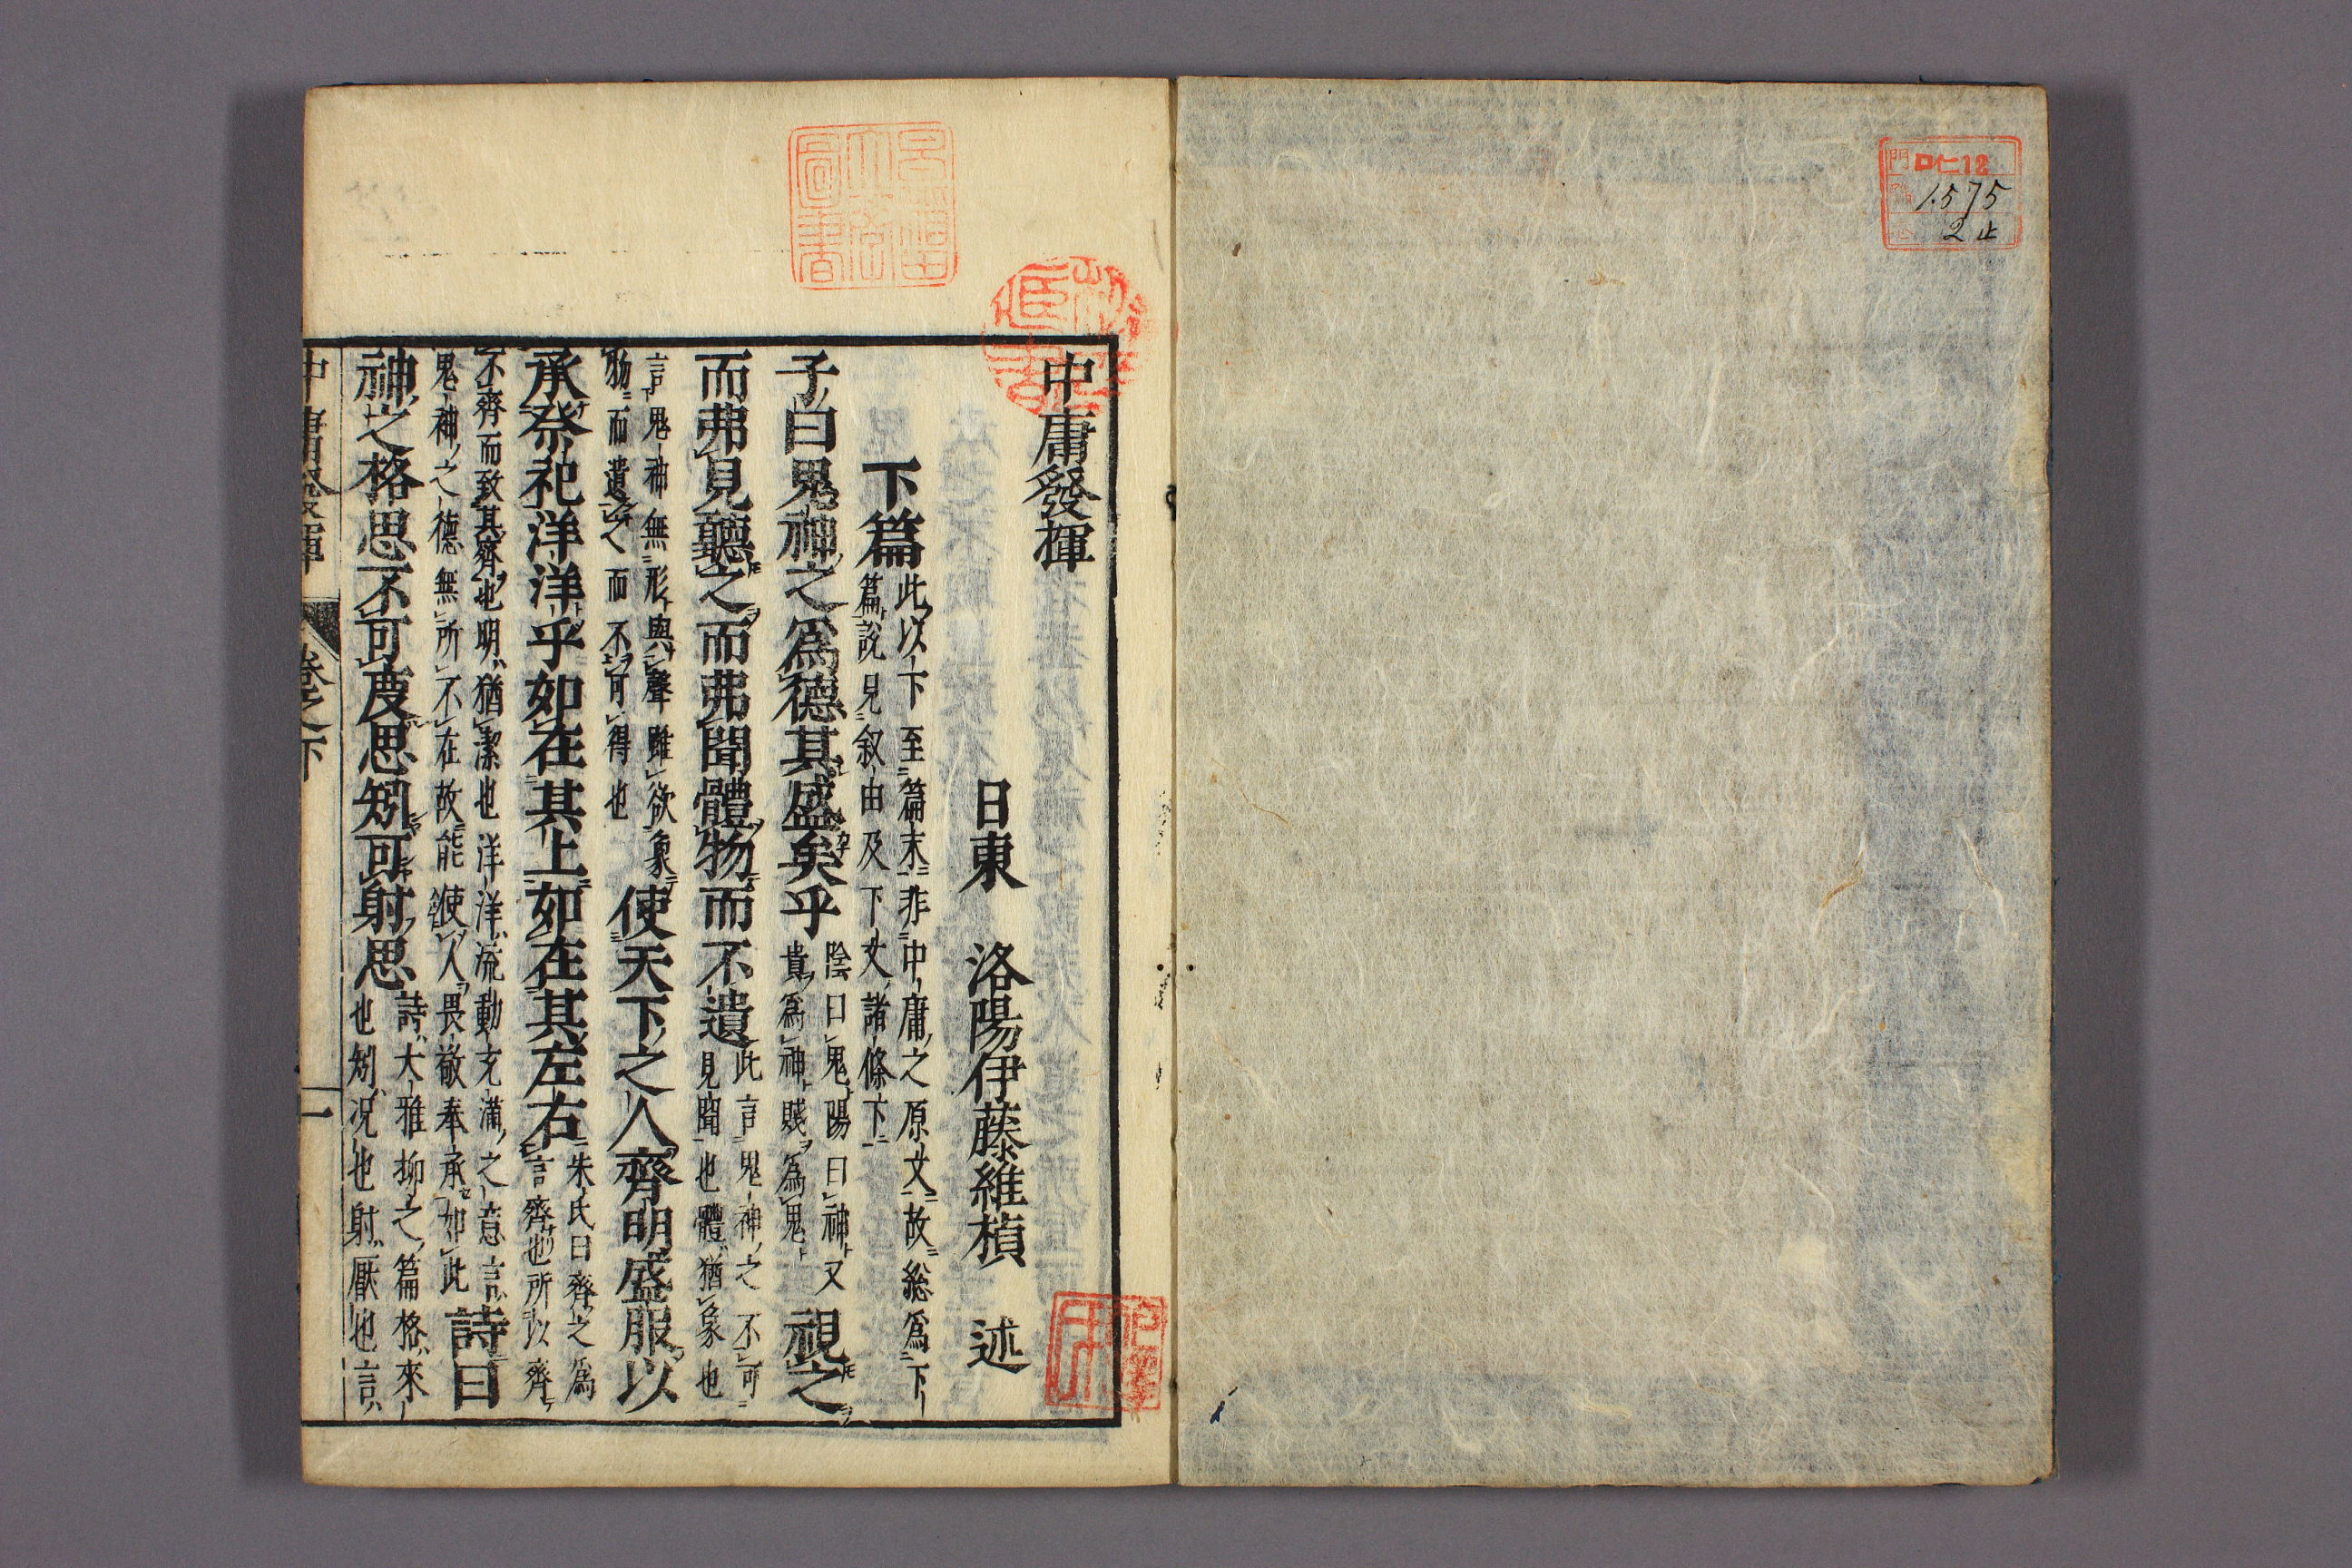 門 ロ仁12
1575
2止
中庸發揮
日東 洛陽伊藤維楨 述
下篇
此以下至篇末非中庸之原文故総爲下
篇說見叙由及下文諸條下
子曰鬼神之爲德其盛矣乎
陰曰鬼陽曰神又
貴爲神賤爲鬼
視之
而弗見聽之而弗聞體物而不遺
此言鬼神之不可
見聞也體猶象也
言鬼神無形與聲雖欲象
物而遺之而不可得也
使天下之人齊明盛服以
承祭祀洋洋乎如在其上如在其左右
朱氏曰齊之爲
言齊也所以齊
不齊而致其齊也明猶潔也洋洋流動充滿之意言
鬼神之德無所不在故能使人畏敬奉承如此
詩曰
神之格思不可度思矧可射思
詩大雅抑之篇格來
也矧況也射厭也言
中庸發揮 卷之下 一